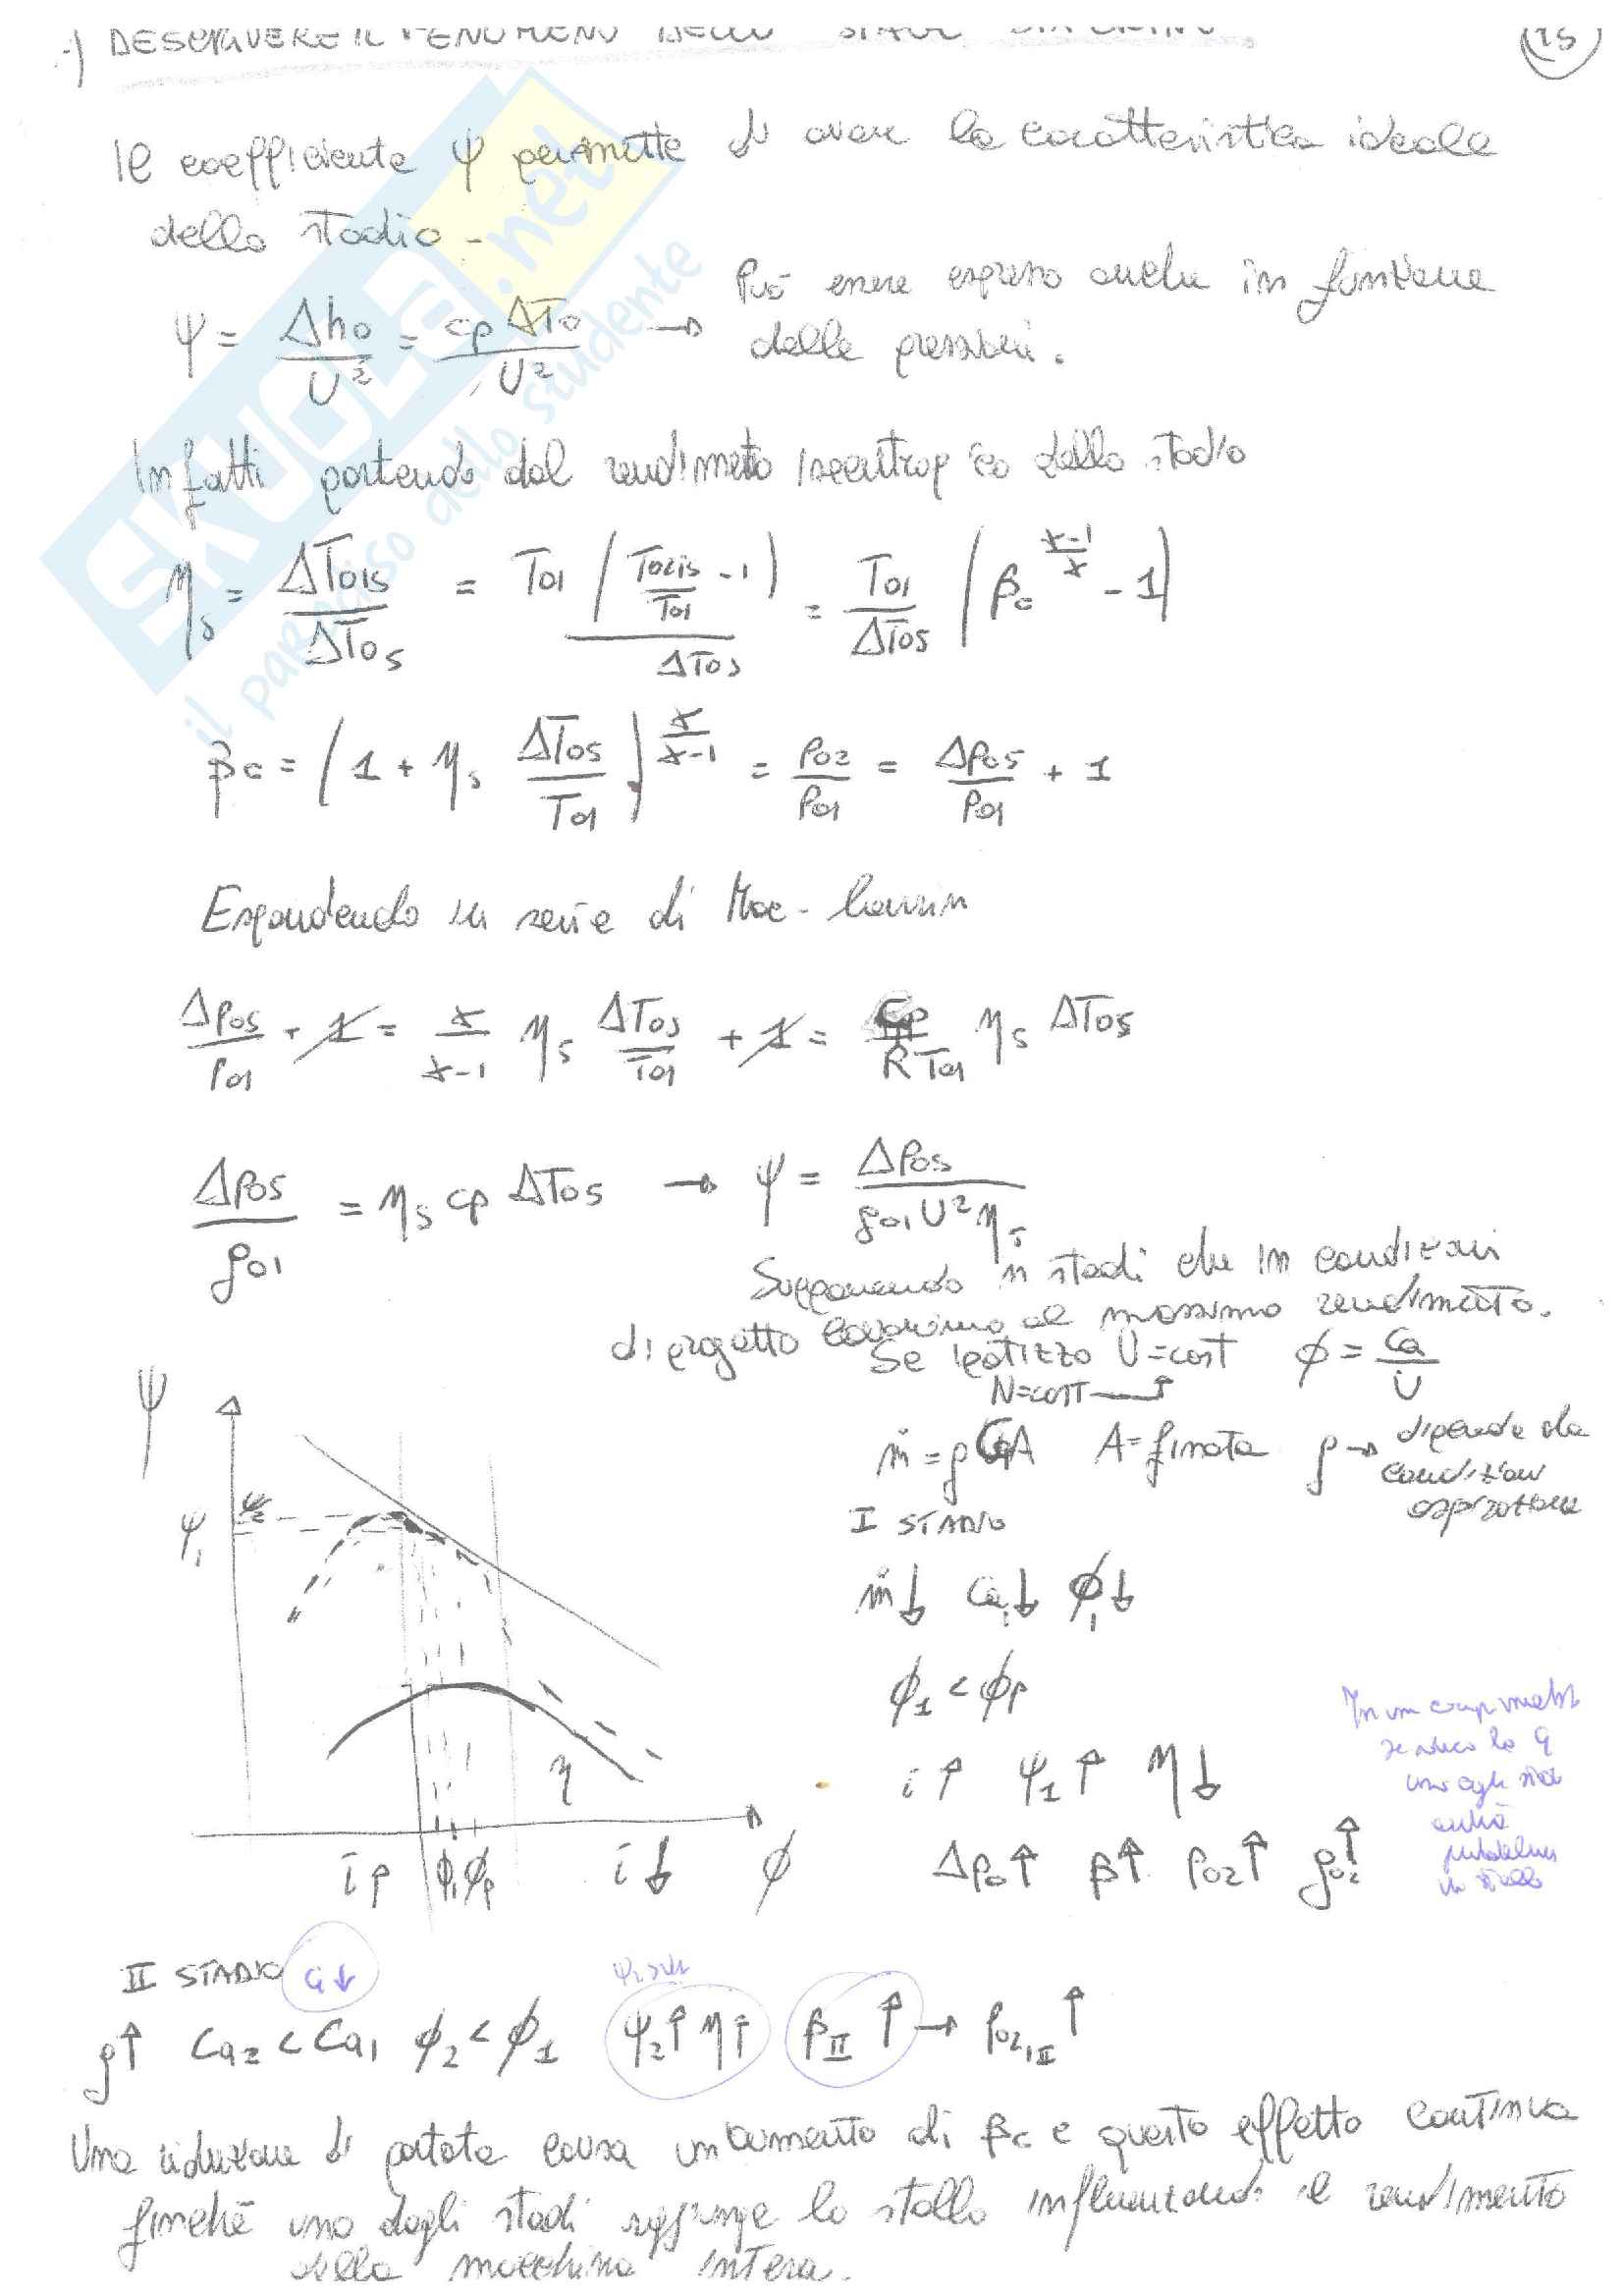 -) DESCRIVERE IL FENOMENO DELLO STALL 
25
Il coefficiente ψ permette di avere la caratteristica ideale
dello stadio -
ψ = Δh0 / U² = cp ΔT0 / U² → Può essere espresso anche in funzione
delle pressioni.
Infatti partendo dal rendimento isentropico dello stadio
ηs = ΔT0is / ΔT0s = T01 (T02is / T01 - 1) / ΔT0s = T01 / ΔT0s (βc^((k-1)/k) - 1)
βc = (1 + ηs ΔT0s / T01)^(k/(k-1)) = P02 / P01 = ΔP0s / P01 + 1
Espandendo in serie di Mac-Laurin
ΔP0s / P01 + 1 = k/(k-1) ηs ΔT0s / T01 + 1 = cp / (R T01) ηs ΔT0s
ΔP0s / ρ01 = ηs cp ΔT0s → ψ = ΔP0s / (ρ01 U² ηs)
Supponendo n stadi che in condizioni
di progetto lavorino al massimo rendimento.
Se ipotizzo U=cost φ = Ca / U
N=cost
ṁ = ρ Ca A A = fissata ρ → dipende da
condizioni
aspirazione
I STADIO
ṁ↓ Ca1↓ φ1↓
φ1 < φp
i↑ ψ1↑ η↓
Δp0↑ β↑ P02↑ ρ02↑
ψ
ψ2
ψ1
η
i↑ φ1 φp i↓ φ
In un
se riduco la q
uno degli stadi
in stallo
II STADIO Ca↓
ρ↑ Ca2 < Ca1 φ2 < φ1 ψ2↑ η↑ βII↑ → P02,II↑
Una riduzione di portata causa un aumento di βc e questo effetto continua
finchè uno degli stadi raggiunge lo stallo influenzando il rendimento
della macchina intera.
SKUOLA.net
il paradiso dello studente